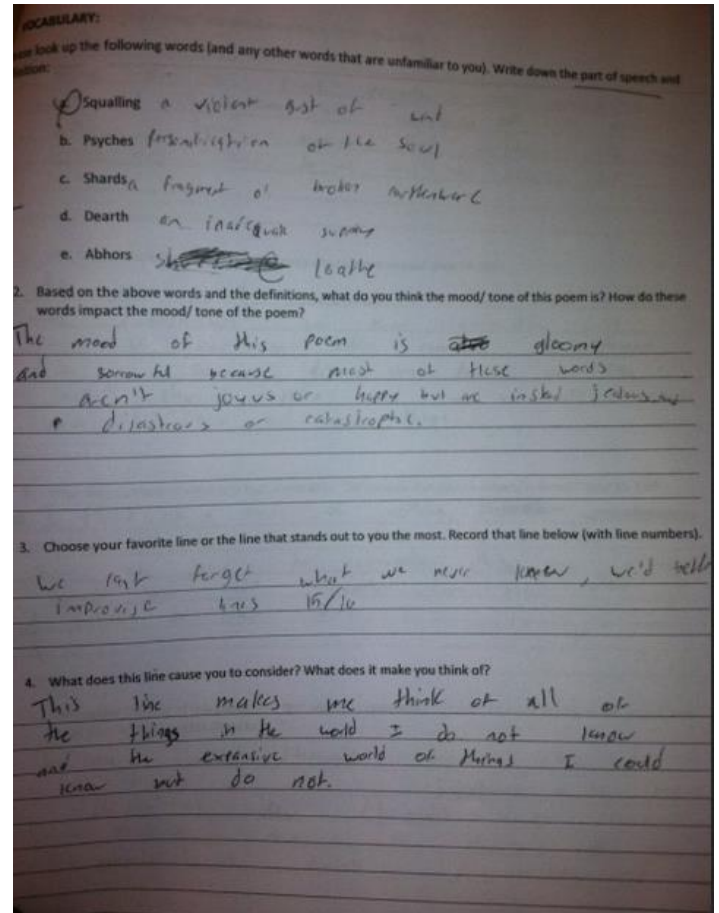 VOCABULARY:
look up the following words (and any other words that are unfamiliar to you). Write down the part of speech and
a. Squalling a violent gust of wind
b. Psyches personification of the soul
c. Shards a fragment of broken earthenware
d. Dearth an inadequate supply
e. Abhors loathe
2. Based on the above words and the definitions, what do you think the mood/ tone of this poem is? How do these
words impact the mood/ tone of the poem?
The mood of this poem is gloomy
and sorrowful because most of these words
aren't joyus or happy but are insted jealous and
disastrous or catastrophic.
3. Choose your favorite line or the line that stands out to you the most. Record that line below (with line numbers).
We can't forget what we never knew, we'd better
improvise lines 15/16
4. What does this line cause you to consider? What does it make you think of?
This line makes me think of all of
the things in the world I do not know
and the expansive world of things I could
know but do not.